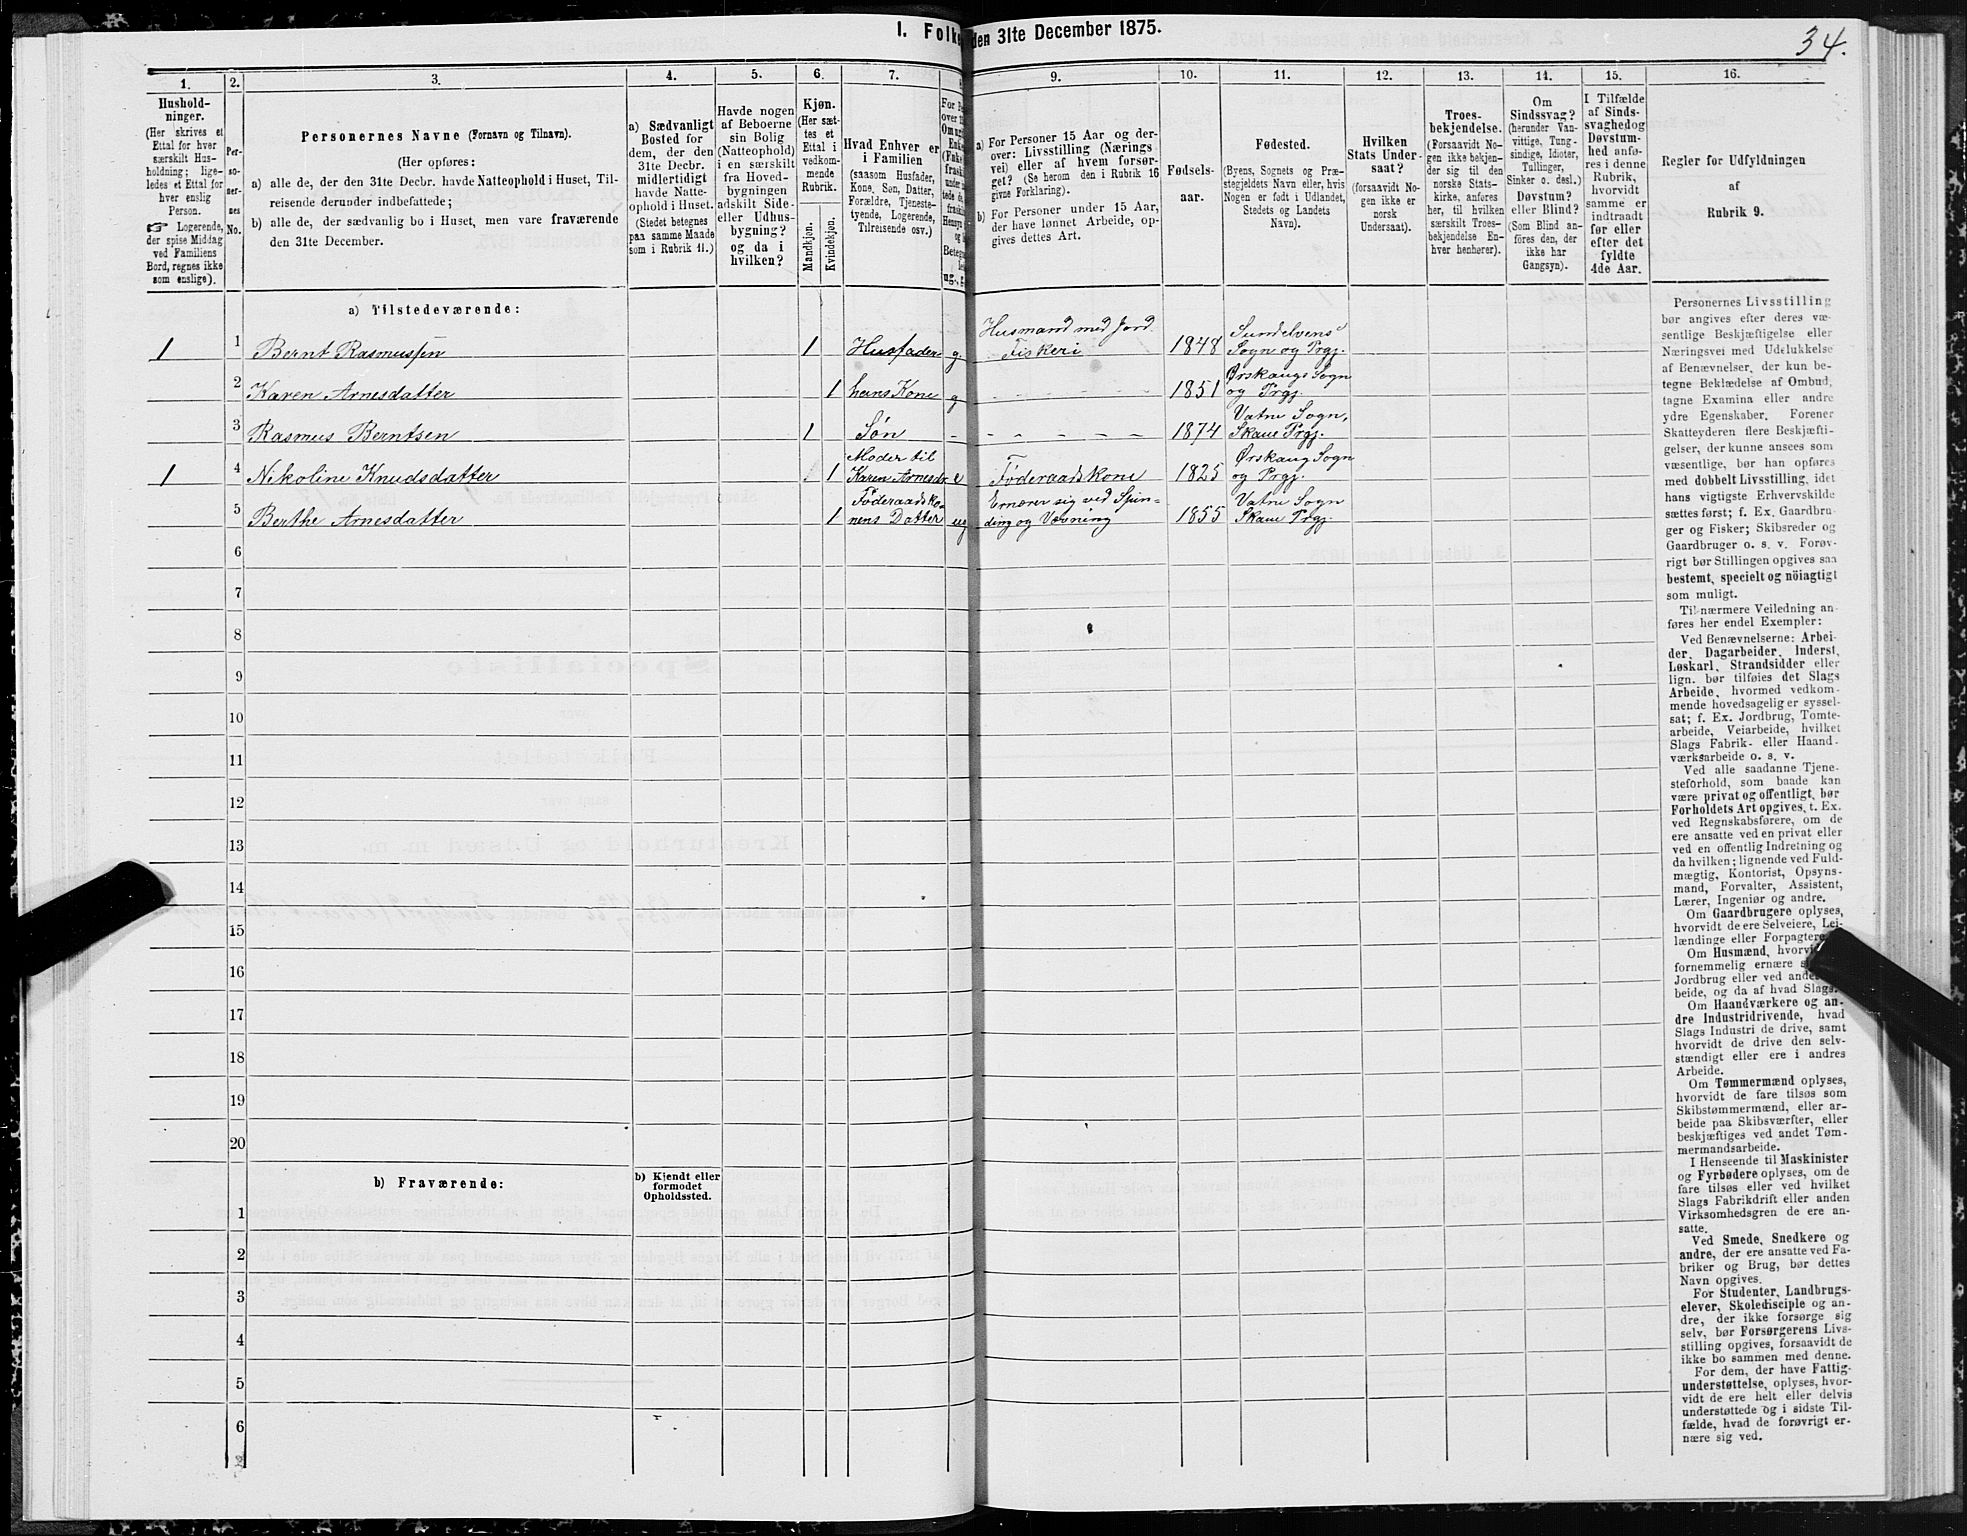 I. Folke den 31te December 1875.
34.
1.
Hushold-
ninger.
(Her skrives et
Ettal for hver
særskilt Hus-
holdning; lige-
ledes et Ettal for
hver enslig
Person.
☞ Logerende,
der spise Middag
ved Familiens
Bord, regnes ikke
som enslige).
2.
Per-
so-
ner-
nes
No.
3.
Personernes Navne (Fornavn og Tilnavn).
(Her opføres:
a) alle de, der den 31te Decbr. havde Natteophold i Huset, Til-
reisende derunder indbefattede;
b) alle de, der sædvanlig bo i Huset, men vare fraværende
den 31te December.
4.
a) Sædvanligt
Bosted for
dem, der den
31te Decbr.
midlertidigt
havde Natte-
ophold i Huset.
(Stedet betegnes
paa samme Maade
som i Rubrik 11.)
5.
Havde nogen
af Beboerne
sin Bolig
(Natteophold)
i en særskilt
fra Hoved-
bygningen
adskilt Side-
eller Udhus-
bygning?
og da i
hvilken?
6.
Kjøn.
(Her sæt-
tes et
Ettal i
vedkom-
mende
Rubrik.
Mandkjøn.
Kvindekjøn.
7.
Hvad Enhver er
i Familien
(saasom Husfader,
Kone, Søn, Datter,
Forældre, Tjeneste-
tyende, Logerende,
Tilreisende osv.)
9.
a) For Personer 15 Aar og der-
over: Livsstilling (Nærings-
vei) eller af hvem forsør-
get? (Se herom den i Rubrik 16
givne Forklaring).
b) For Personer under 15 Aar,
der have lønnet Arbeide, op-
gives dettes Art.
10.
Fødsels-
aar.
11.
Fødested.
(Byens, Sognets og Præ-
stegjeldets Navn eller, hvis
Nogen er født i Udlandet,
Stedets og Landets
Navn).
12.
Hvilken
Stats Under-
saat?
(forsaavidt No-
gen ikke er
norsk
Undersaat).
13.
Troes-
bekjendelse.
(Forsaavidt No-
gen ikke bekjen-
der sig til den
norske Stats-
kirke, anføres
her, til hvilken
særskilt Troes-
bekjendelse En-
hver henhører).
14.
Om
Sindssvag?
(herunder Van-
vittige, Tung-
sindige, Idioter,
Tullinger,
Sinker o. desl.)
Døvstum?
eller Blind?
(Som Blind an-
føres den, der
ikke har
Gangsyn).
15.
I Tilfælde
af Sinds-
svaghed og
Døvstum-
hed anfø-
res i denne
Rubrik,
hvorvidt
samme er
indtraadt
før eller
efter det
fyldte
4de Aar.
16.
Regler for Udfyldningen
af
Rubrik 9.
a) Tilstedeværende:
1 1 Bernt Rasmussen 1 Husfader g. Husmand med Jord. Fiskeri 1848 Sundelvens Sogn og Prgj.
2 Karen Arnesdatter 1 hans Kone g - - - - 1851 Ørskaugs Sogn og Prgj.
3 Rasmus Berntsen 1 Søn - - - - - 1874 Vatne Sogn, Skaue Prgj.
1 4 Nikoline Knudsdatter 1 Moder til Karen Arnesdr. e Føderaadskone 1825 Ørskaug Sogn og Prgj.
5 Berthe Arnesdatter 1 Føderaadsko- nens Datter ug Ernærer sig ved Spin- ding og Væsning 1855 Vatne Sogn Skaue Prgj.
6
7
8
9
10
11
12
13
14
15
16
17
18
19
20
b) Fraværende:
b) Kjendt eller
formodet
Opholdssted.
1
2
3
4
5
6
Personernes Livsstilling
bør angives efter deres væ-
sentlige Beskjæftigelse eller
Næringsvei med Udelukkelse
af Benævnelser, der kun be-
tegne Beklædelse af Ombud,
tagne Examina eller andre
ydre Egenskaber. Forener
Skatteyderen flere Beskjæfti-
gelser, der kunne ansees som
væsentlige, bør han opføres
med dobbelt Livsstilling, idet
hans vigtigste Erhvervskilde
sættes først; f. Ex. Gaardbru-
ger og Fisker; Skibsreder og
Gaardbruger o. s. v. Forøv-
rigt bør Stillingen opgives saa
bestemt, specielt og nöiagtigt
som muligt.
Til nærmere Veiledning an-
føres her endel Exempler:
Ved Benævnelserne: Arbei-
der, Dagarbeider, Inderst,
Løskarl, Strandsidder eller
lign. bør tilføies det Slags
Arbeide, hvormed vedkom-
mende hovedsagelig er syssel-
sat; f. Ex. Jordbrug, Tomte-
arbeide, Veiarbeide, hvilket
Slags Fabrik- eller Haand-
værksarbeide o. s. v.
Ved alle saadanne Tjene-
steforhold, som baade kan
være privat og offentligt, bør
Forholdets Art opgives, t. Ex.
ved Regnskabsførere, om de
ere ansatte ved en privat eller
ved en offentlig Indretning og
da hvilken; lignende ved Fuld-
mægtig, Kontorist, Opsyns-
mand, Forvalter, Assistent,
Lærer, Ingeniør og andre.
Om Gaardbrugere oplyses,
hvorvidt de ere Selveiere, Lei-
lændinge eller Forpagtere.
Om Husmænd, hvorvidt
fornemmelig ernære
Jordbrug eller ved andet
beide, og da af hvad Slags.
Om Haandværkere og an-
dre Industridrivende, hvad
Slags Industri de drive, samt
hvorvidt de drive den selv-
stændigt eller ere i andres
Arbeide.
Om Tømmermænd oplyses,
hvorvidt de fare tilsøs som
Skibstømmermænd, eller ar-
beide paa Skibsværfter, eller
beskjæftiges ved andet Tøm-
mermandsarbeide.
I Henseende til Maskinister
og Fyrbødere oplyses, om de
fare tilsøs eller ved hvilket
Slags Fabrikdrift eller anden
Virksomhedsgren de ere an-
satte.
Ved Smede, Snedkere og
andre, der ere ansatte ved Fa-
briker og Brug, bør dettes
Navn opgives.
For Studenter, Landbrugs-
elever, Skoledisciple og an-
dre, der ikke forsørge sig
selv, bør Forsørgerens Livs-
stilling opgives, forsaavidt de
ikke bo sammen med denne.
For dem, der have Fattig-
understøttelse, oplyses, hvor-
vidt de ere helt eller delvis
understøttede og i sidste Til-
fælde, hvad de forøvrigt er-
nære sig ved.